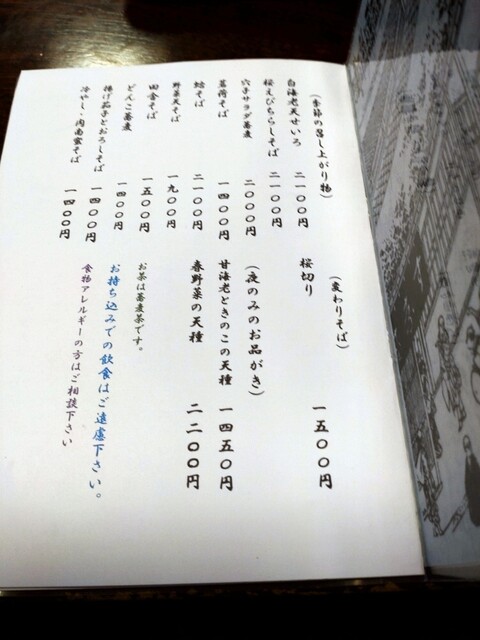 (季節の召し上がり物)
白海老天せいろ 二一〇〇円
桜えびちらしそば 二一〇〇円
穴子サラダ蕎麦 二〇〇〇円
茗荷そば 一四〇〇円
蛤そば 二一〇〇円
野菜天そば 一九〇〇円
田舎そば 一五〇〇円
どんこ蕎麦 一四〇〇円
揚げ茄子とおろしそば 一四〇〇円
冷やし・肉南蛮そば 一四〇〇円
(変わりそば)
桜切り 一五〇〇円
(夜のみのお品がき)
甘海老ときのこの天種 一四五〇円
春野菜の天種 二二〇〇円
お茶は蕎麦茶です。
お持ち込みでの飲食はご遠慮下さい。
食物アレルギーの方はご相談下さい